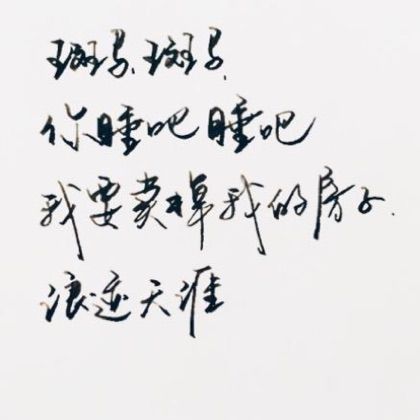 斑马,斑马,
你睡吧睡吧
我要卖掉我的房子.
浪迹天涯